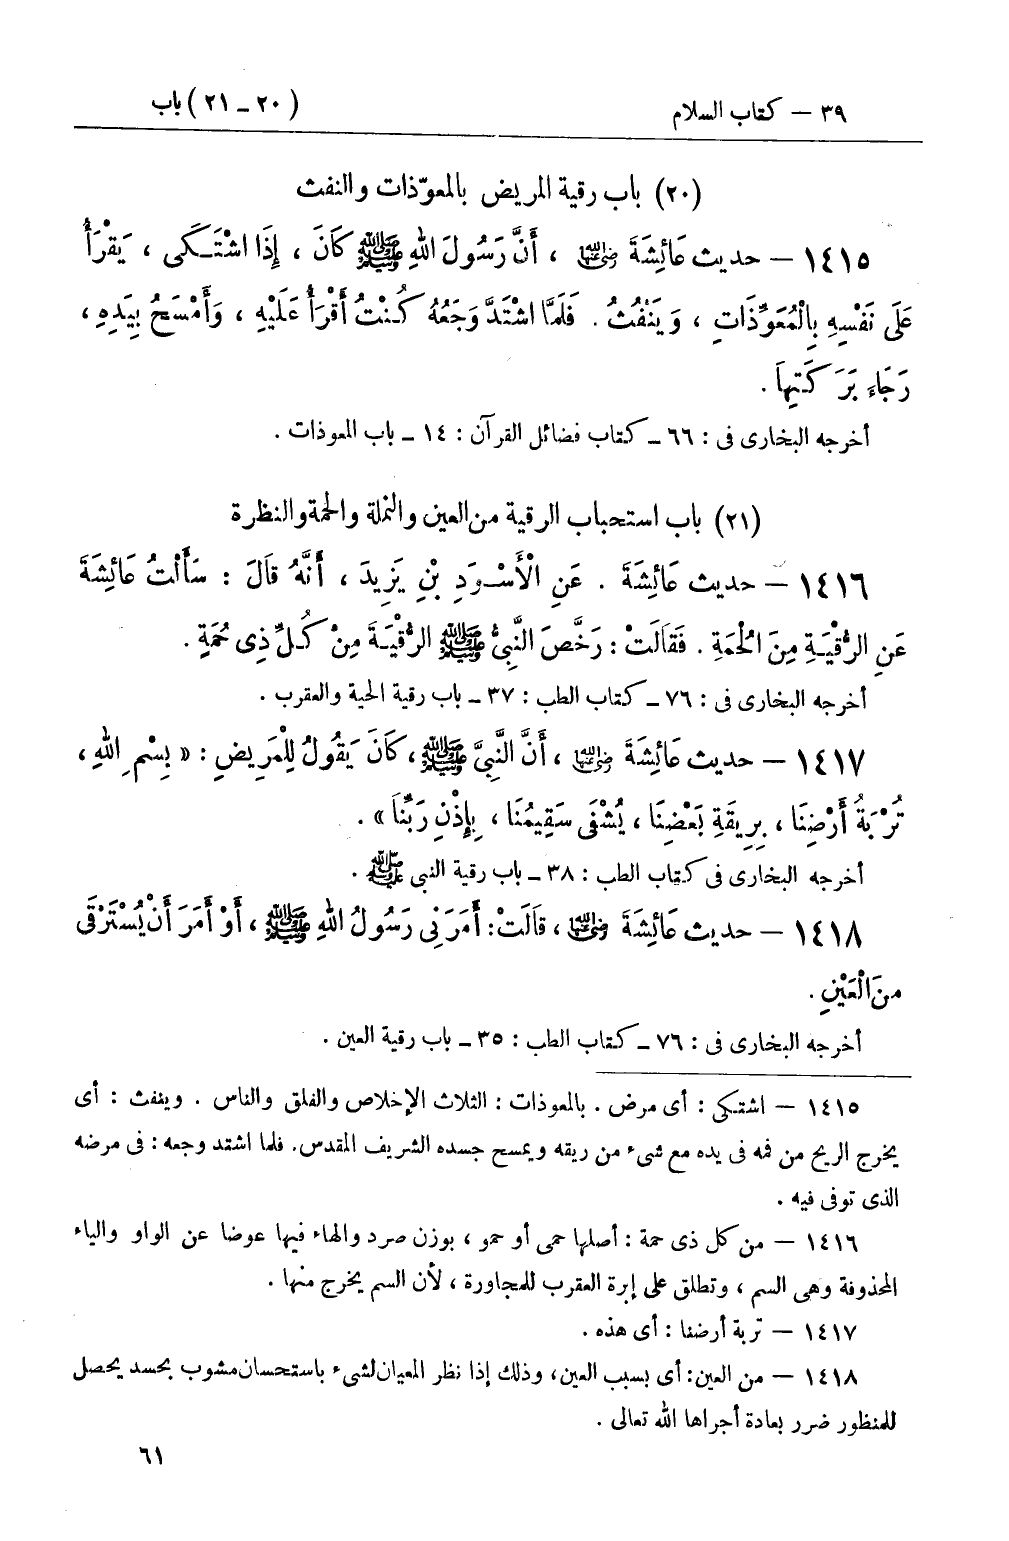 ٣٩ — كتاب السلام (٢٠ – ٢١) باب
(٢٠) باب رقية المريض بالمعوّذات والنفث
١٤١٥ — حديث عَائِشَةَ رضي الله عنها ، أَنَّ رَسُولَ اللهِ ﷺ كَانَ ، إِذَا اشْتَكَى ، يَقْرَأُ
عَلَى نَفْسِهِ بِالْمُعَوِّذَاتِ ، وَيَنْفُثُ . فَلَمَّا اشْتَدَّ وَجَعُهُ كُنْتُ أَقْرَأُ عَلَيْهِ ، وَأَمْسَحُ بِيَدِهِ ،
رَجَاءَ بَرَكَتِهَا .
أخرجه البخارى فى : ٦٦ ــ كتاب فضائل القرآن : ١٤ ــ باب المعوذات .
(٢١) باب استحباب الرقية من العين والنملة والحمة والنظرة
١٤١٦ — حديث عَائِشَةَ . عَنِ الْأَسْوَدِ بْنِ يَزِيدَ ، أَنَّهُ قَالَ : سَأَلْتُ عَائِشَةَ
عَنِ الرُّقْيَةِ مِنَ الْحُمَةِ . فَقَالَتْ : رَخَّصَ النَّبِيُّ ﷺ الرُّقْيَةَ مِنْ كُلِّ ذِى حُمَةٍ .
أخرجه البخارى فى : ٧٦ ــ كتاب الطب : ٣٧ ــ باب رقية الحية والعقرب .
١٤١٧ — حديث عَائِشَةَ رضي الله عنها ، أَنَّ النَّبِيَّ ﷺ ، كَانَ يَقُولُ لِلْمَرِيضِ : « بِسْمِ اللهِ ،
تُرْبَةُ أَرْضِنَا ، بِرِيقَةِ بَعْضِنَا ، يُشْفَى سَقِيمُنَا ، بِإِذْنِ رَبِّنَا » .
أخرجه البخارى فى كتاب الطب : ٣٨ ــ باب رقية النبى ﷺ .
١٤١٨ — حديث عَائِشَةَ رضي الله عنها ، قَالَتْ : أَمَرَنِى رَسُولُ اللهِ ﷺ ، أَوْ أَمَرَ أَنْ يُسْتَرْقَى
مِنَ الْعَيْنِ .
أخرجه البخارى فى : ٧٦ ــ كتاب الطب : ٣٥ ــ باب رقية العين .
١٤١٥ — اشتكى : أى مرض . بالمعوذات : الثلاث الإخلاص والفلق والناس . وينفث : أى
يخرج الريح من فمه فى يده مع شىء من ريقه ويمسح جسده الشريف المقدس. فلما اشتد وجعه : فى مرضه
الذى توفى فيه .
١٤١٦ — من كل ذى حمة : أصلها حمى أو حمو ، بوزن صرد والهاء فيها عوضا عن الواو والياء
المحذوفة وهى السم ، وتطلق على إبرة العقرب للمجاورة ، لأن السم يخرج منها .
١٤١٧ — تربة أرضنا : أى هذه .
١٤١٨ — من العين: أى بسبب العين، وذلك إذا نظر المعيان لشىء باستحسان مشوب بحسد يحصل
للمنظور ضرر بعادة أجراها الله تعالى .
٦١